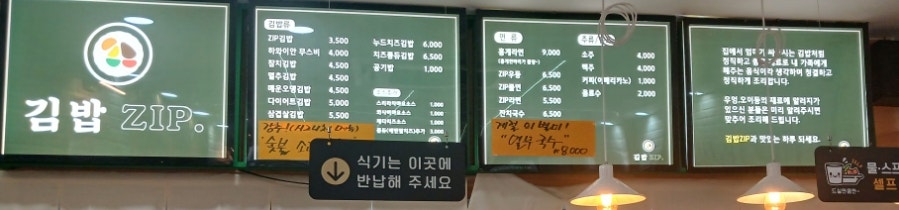 김밥 ZIP.
김밥류
ZIP김밥 3,500
하와이안 무스비 4,000
참치김밥 4,500
멸추김밥 4,500
매운오뎅김밥 4,500
다이어트김밥 5,000
삼겹살김밥 5,500
누드치즈김밥 6,000
치즈롱유김밥 6,500
공기밥 1,000
스리라차마요소스 1,000
와사비마요소스 1,000
3,000
면류
홍게라면 9,000
ZIP우동 6,500
ZIP쫄면 6,500
ZIP라면 5,500
잔치국수 6,500
주류
소주 4,000
맥주 4,000
커피(아메리카노) 3,000
음료수 2,000
계절
"열무국수"
₩8,000
김밥 ZIP.
집에서 엄마가 싸주시는 김밥처럼
정직하고 내 가족에게
해주는 음식이라 생각하여 청결하고
정직하게 조리합니다.
우엉,오이등의 재료에 알러지가
있으신 분들은 미리 말씀해주시면
맞추어 조리해 드립니다.
김밥ZIP과 맛있는 하루 되세요.
식기는 이곳에
반납해 주세요
물·스프
셀프